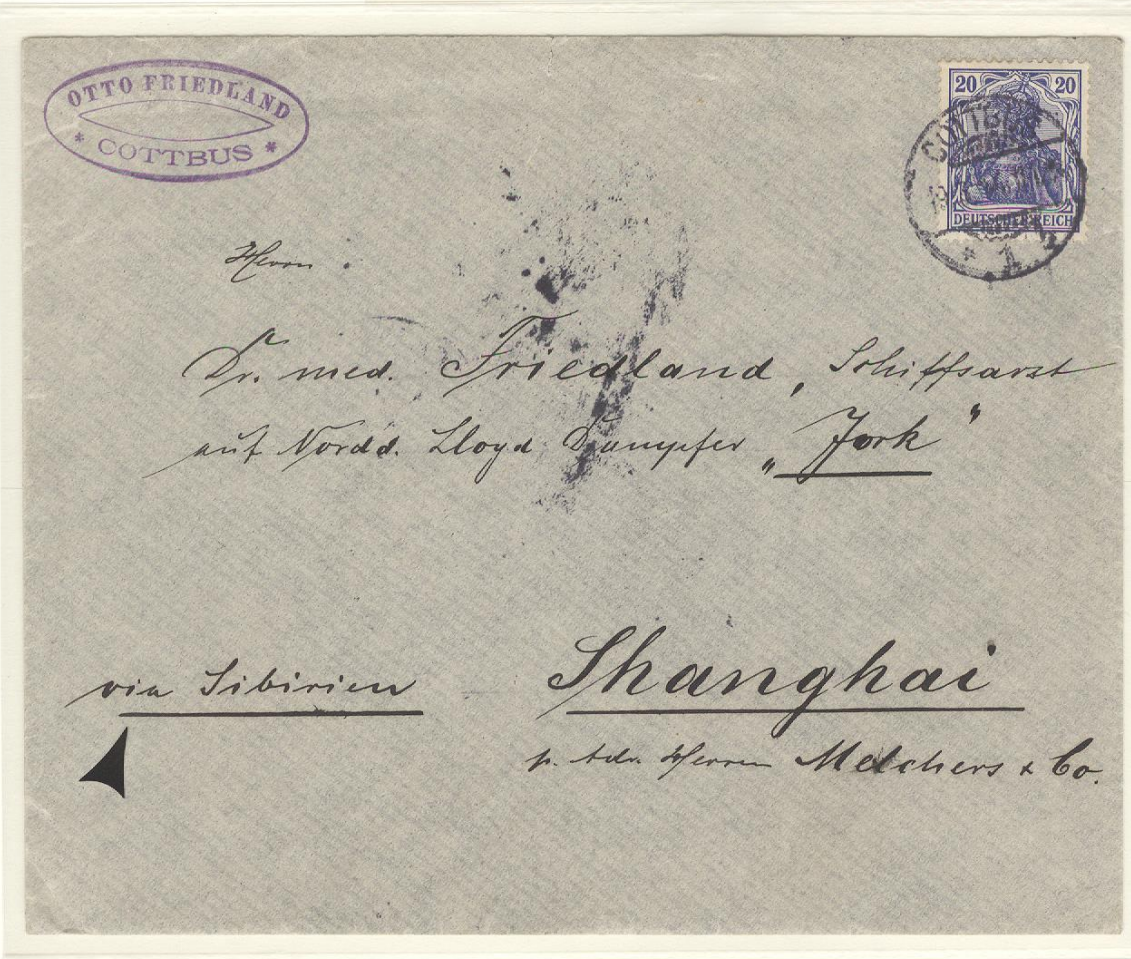 OTTO FRIEDLAND
* COTTBUS *
20 20
DEUTSCHES REICH
COTTBUS
* 1
Herrn
Dr. med. Friedland, Schiffsarzt
auf Nordd. Lloyd Dampfer „York"
via Sibirien
Shanghai
p. Adr. Herren Melchers & Co.